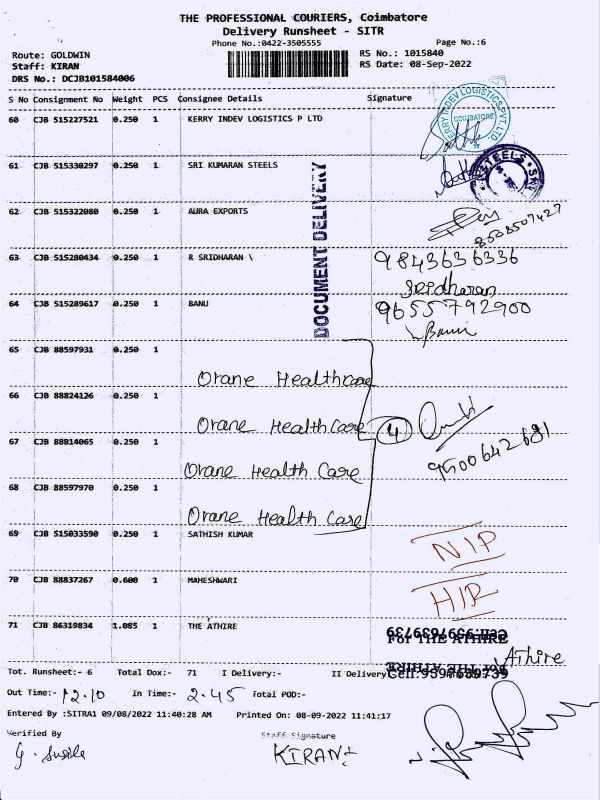 THE PROFESSIONAL COURIERS, Coimbatore
Delivery Runsheet - SITR
Phone No.:0422-3505555 Page No.:6
Route: GOLDWIN RS No.: 1015840
Staff: KIRAN RS Date: 08-Sep-2022
DRS No.: DCJB101584006
S No Consignment No Weight PCS Consignee Details Signature
60 CJB 515227521 0.250 1 KERRY INDEV LOGISTICS P LTD
KERRY INDEV LOGISTICS PVT. LTD
COIMBATORE
61 CJB 515330297 0.250 1 SRI KUMARAN STEELS
STEELS * SRI
62 CJB 515322080 0.250 1 AURA EXPORTS
8508507427
63 CJB 515280434 0.250 1 R SRIDHARAN \ 9843636336
Sridharan
64 CJB 515289617 0.250 1 BANU 9655792900
Banu
DOCUMENT DELIVERY
65 CJB 88597931 0.250 1
Orane Healthcare
66 CJB 88824126 0.250 1
Orane Health Care 4
67 CJB 88814065 0.250 1 9500642681
Orane Health Care
68 CJB 88597970 0.250 1
Orane Health Care
69 CJB 515033590 0.250 1 SATHISH KUMAR NIP
70 CJB 88837267 0.600 1 MAHESHWARI HIR
71 CJB 86319834 1.085 1 THE ATHIRE
For THE ATHIRE
Athire
Cell:9597659739
Tot. Runsheet:- 6 Total Dox:- 71 I Delivery:- II Delivery
Out Time:- 12.10 In Time:- 2.45 Total POD:-
Entered By :SITRA1 09/08/2022 11:40:28 AM Printed On: 08-09-2022 11:41:17
Verified By Staff Signature
KIRAN